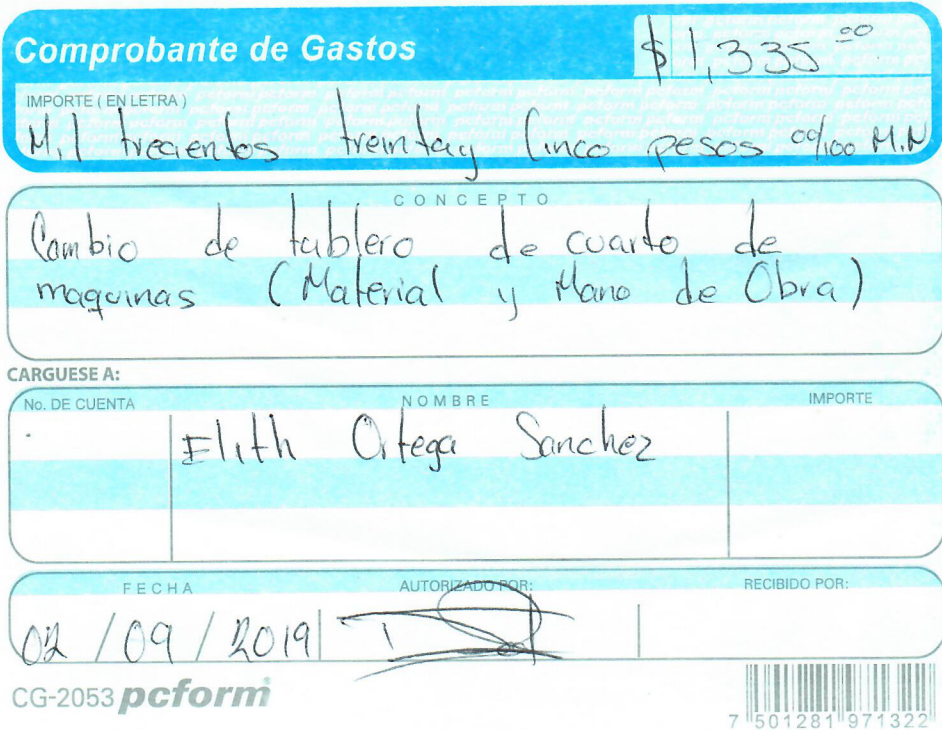 Comprobante de Gastos
$ 1,335 00
IMPORTE ( EN LETRA )
Mil trecientos treinta y Cinco pesos 00/100 M.N
CONCEPTO
Cambio de tablero de cuarto de
maquinas (Material y Mano de Obra)
CARGUESE A:
No. DE CUENTA NOMBRE IMPORTE
Elith Ortega Sanchez
FECHA AUTORIZADO POR: RECIBIDO POR:
02 / 09 / 2019
CG-2053 pcform
7 501281 971322